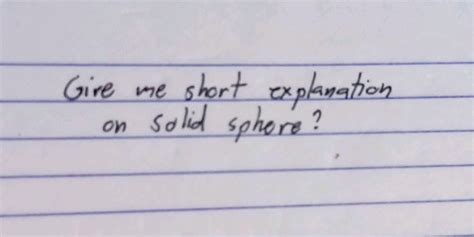 Give me short explanation
on solid sphere?